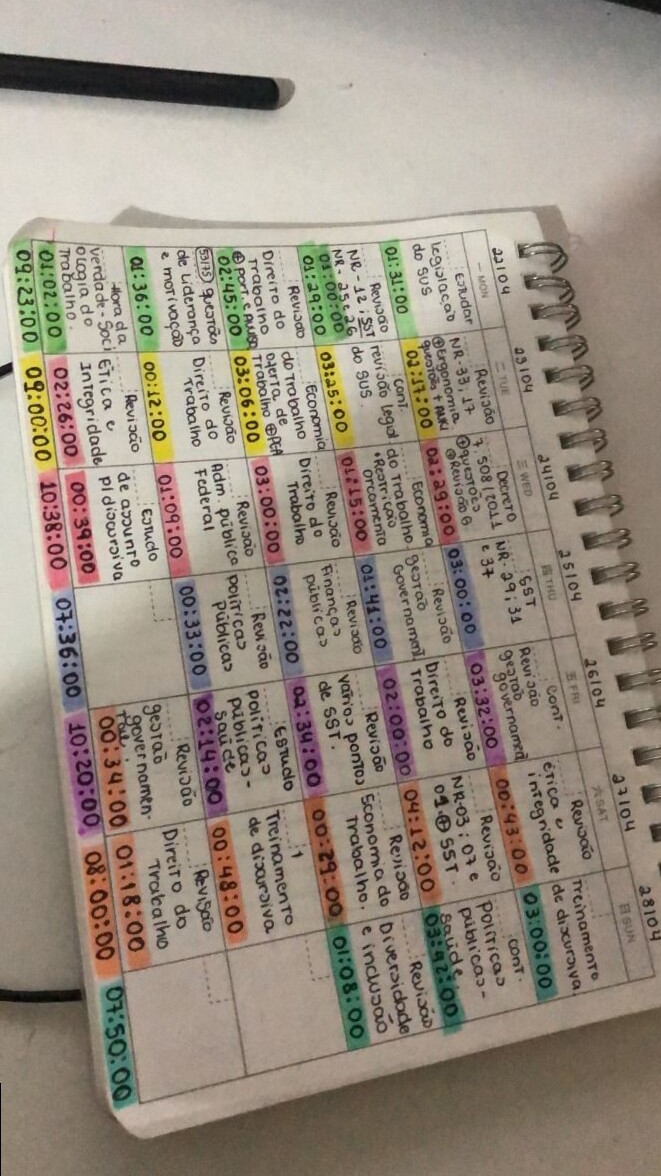 22/04
MON
Estudar
legislação
do SUS
01:31:00
Revisão
NR-12; SST
NR-25 e 26
01:00:00
01:29:00
Revisão
Direito do
Trabalho
02:45:00
53/75 questões
de Liderança
e motivação
01:36:00
Hora da
verdade - Soci
ologia do
Trabalho.
01:02:00
09:23:00
23/04
TUE
Revisão
NR-33, 17
⊕Ergonomia
questões + ANKI
02:17:00
cont.
revisão legisl
do SUS.
03:25:00
Economia
do trabalho
oferta de
Trabalho ⊕PEA
03:06:00
Revisão
Direito do
Trabalho
00:12:00
Revisão
Ética e
Integridade
02:26:00
09:00:00
24/04
WED
Decreto
7.508/2011
⊕questões
⊕Revisão
02:29:00
Economia
do Trabalho
•Restrição
Orcamento
01:15:00
Revisão
Direito do
Trabalho
03:00:00
Revisão
Adm. pública
Federal
01:09:00
Estudo
de assunto
p/discursiva
00:39:00
10:38:00
25/04
THU
SST
NR-29; 31
e 37
03:00:00
Revisão
gestão
Governament
01:41:00
Revisão
Finanças
públicas
02:22:00
Revisão
políticas
públicas
00:33:00
07:36:00
26/04
FRI
cont.
Revisão
gestão
governamen
03:32:00
Revisão
Direito do
Trabalho
02:00:00
Revisão
vários pontos
de SST.
02:34:00
Estudo
políticas
públicas -
saúde
02:14:00
Revisão
gestão
governamen-
tal.
00:34:00
10:20:00
27/04
SAT
Revisão
ética e
integridade
00:43:00
Revisão
NR-03; 07 e
09 ⊕ SST.
04:12:00
Revisão
Economia do
Trabalho.
00:29:00
Treinamento
de discursiva
00:48:00
Revisão
Direito do
Trabalho
01:18:00
08:00:00
28/04
SUN
Treinamento
de discursiva
03:00:00
cont.
políticas
públicas -
saúde.
03:42:00
Revisão
Diversidade
e inclusão
01:08:00
07:50:00